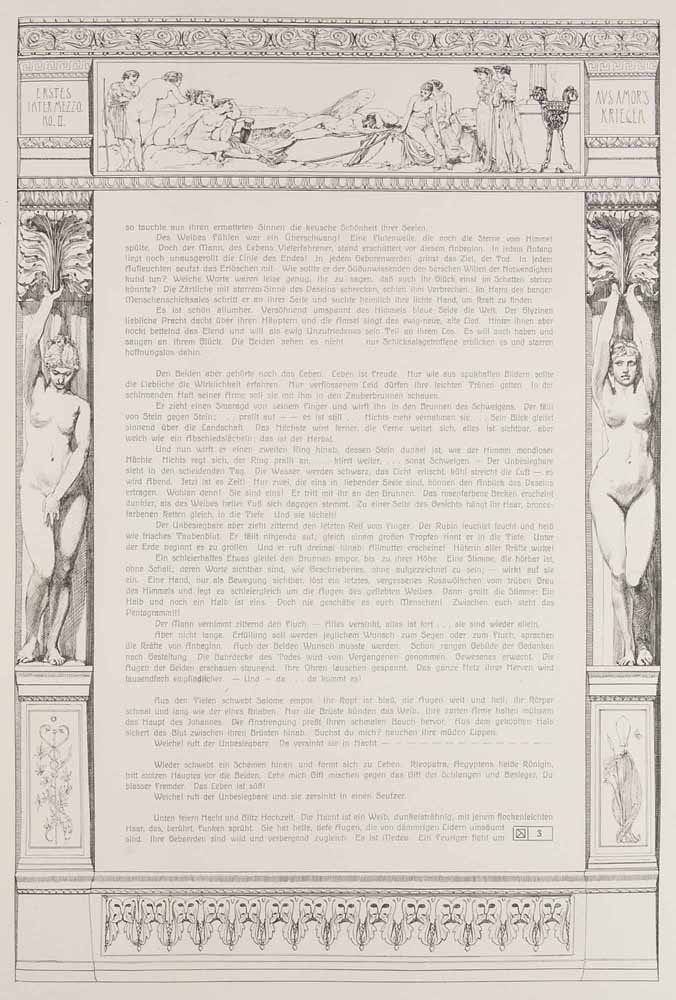 ERSTES
INTERMEZZO
NO. II.
AVS AMOR'S
KRIEGEN
so tauchte aus ihren ermatteten Sinnen die keusche Schönheit ihrer Seelen.
Des Weibes Fühlen war ein Überschwang! Eine Flutenwelle, die noch die Sterne vom Himmel
spülte. Doch der Mann, des Lebens Vielerfahrener, stand erschüttert vor diesem Anbeginn. In jedem Anfang
liegt noch unausgerollt die Linie des Endes! In jedem Geborenwerden grinst das Ziel, der Tod. In jedem
Aufleuchten seufzt das Erlöschen mit. Wie sollte er der Süßunwissenden den barschen Willen der Notwendigkeit
kund tun? Welche Worte waren leise genug, ihr zu sagen, daß auch ihr Glück einst im Schatten stehen
könnte? Die Zärtliche mit starrem Sinne des Daseins schrecken, schien ihm Verbrechen. Im Harm des bangen
Menschenschicksales schritt er an ihrer Seite und suchte heimlich ihre lichte Hand, um Kraft zu finden.
Es ist schön allumher. Versöhnend umspannt des Himmels blaue Seide die Welt. Der Glyzinen
liebliche Pracht dacht über ihren Häuptern und die Amsel singt das ewig-neue, alte Lied. Hinter ihnen aber
hockt bettelnd das Elend und will als ewig Unzufriedenes sein Teil an ihrem Los. Es will auch haben und
saugen an ihrem Glück. Die Beiden sehen es nicht nur Schicksalsgetroffene erblicken es und starren
hoffnungslos dahin.
Den Beiden aber gehörte noch das Leben. Leben ist Freude. Nur wie aus spukhaften Bildern sollte
die Liebliche die Wirklichkeit erfahren. Nur verflossenem Leid dürfen ihre leichten Tränen gelten. In der
schirmenden Haft seiner Arme soll sie mit ihm in den Zauberbrunnen schauen.
Er zieht einen Smaragd von seinem Finger und wirft ihn in den Brunnen des Schweigens. Der fällt
von Stein gegen Stein; . . prallt auf — — es ist still . . Nichts mehr vernahmen sie. . . Sein Blick gleitet
sinnend über die Landschaft. Das Nächste wird ferner, die Ferne weitet sich, alles ist sichtbar, aber
weich wie ein Abschiedslächeln; das ist der Herbst.
Und nun wirft er einen zweiten Ring hinab, dessen Stein dunkel ist, wie der Himmel mondloser
Nächte. Nichts regt sich, der Ring prallt an, . . . klirrt weiter, . . . sonst Schweigen. — Der Unbesiegbare
sieht in den scheidenden Tag. Die Wasser werden schwarz, das Licht erlischt, kühl streicht die Luft — es
wird Abend. Jetzt ist es Zeit! Nur zwei, die eins in liebender Seele sind, können den Anblick des Daseins
ertragen. Wohlan denn! Sie sind eins! Er tritt mit ihr an den Brunnen. Das rosenfarbene Becken erscheint
dunkler, als des Weibes heller Fuß sich dagegen stemmt. Zu einer Seite des Gesichts hängt ihr Haar, bronce-
farbenen Ketten gleich, in die Tiefe. Und sie lächelt!
Der Unbesiegbare aber zieht zitternd den letzten Reif vom Finger. Der Rubin leuchtet feucht und heiß
wie frisches Taubenblut. Er fällt nirgends auf; gleich einem großen Tropfen rinnt er in die Tiefe. Unter
der Erde beginnt es zu grollen. Und er ruft dreimal hinab: Allmutter erscheine! Hüterin aller Kräfte wirke!
Ein schleierhaftes Etwas gleitet den Brunnen empor, bis zu ihrer Höhe. Eine Stimme, die hörbar ist,
ohne Schall; deren Worte sichtbar sind, wie Geschriebenes, ohne aufgezeichnet zu sein; — wirkt auf sie
ein. Eine Hand, nur als Bewegung sichtbar, löst ein letztes, vergessenes Rosawölkchen vom trüben Grau
des Himmels und legt es schleiergleich um die Augen des geliebten Weibes. Dann grollt die Stimme: Ein
Halb und noch ein Halb ist eins. Doch nie geschähe es euch Menschen! Zwischen euch steht das
Pentagramm!!!
Der Mann vernimmt zitternd den Fluch. — Alles versinkt, alles ist fort . . ., sie sind wieder allein.
Aber nicht lange. Erfüllung soll werden jeglichem Wunsch zum Segen oder zum Fluch, sprachen
die Kräfte von Anbeginn. Auch der Beiden Wunsch musste werden. Schon rangen Gebilde der Gedanken
nach Gestaltung. Die Bahrdecke des Todes wird vom Vergangenen genommen. Gewesenes erwacht. Die
Augen der Beiden erschauen staunend. Ihre Ohren lauschen gespannt. Das ganze Netz ihrer Nerven wird
tausendfach empfindlicher. — Und — da . . . da kommt es!
Aus den Tiefen schwebt Salome empor. Ihr Kopf ist bleß, die Augen weit und hell; ihr Körper
schmal und lang wie der eines Knaben. Nur die Brüste künden das Weib. Ihre zarten Arme halten mühsam
das Haupt des Johannes. Die Anstrengung preßt ihren schmalen Bauch hervor. Aus dem geköpften Hals
sickert das Blut zwischen ihren Brüsten hinab. Suchst du mich? hauchen ihre müden Lippen.
Weiche! ruft der Unbesiegbare. Da versinkt sie in Nacht — — — — — — — — — — — —
Wieder schwebt ein Schemen hinan und formt sich zu Leben. Kleopatra, Aegyptens heiße Königin,
tritt stolzen Hauptes vor die Beiden. Lehr mich Gift mischen gegen das Gift der Schlangen und Besieger, Du
blasser Fremder. Das Leben ist süß!
Weiche! ruft der Unbesiegbare und sie zersinkt in einen Seufzer.
Unten feiern Nacht und Blitz Hochzeit. Die Nacht ist ein Weib, dunkelsträhnig, mit jenem flockenleichten
Haar, das, berührt, Funken sprüht. Sie hat helle, tiefe Augen, die von dämmrigen Lidern umsäumt
sind. Ihre Gebaerden sind wild und verbergend zugleich. Es ist Medea. Ein Feuriger fleht um
3